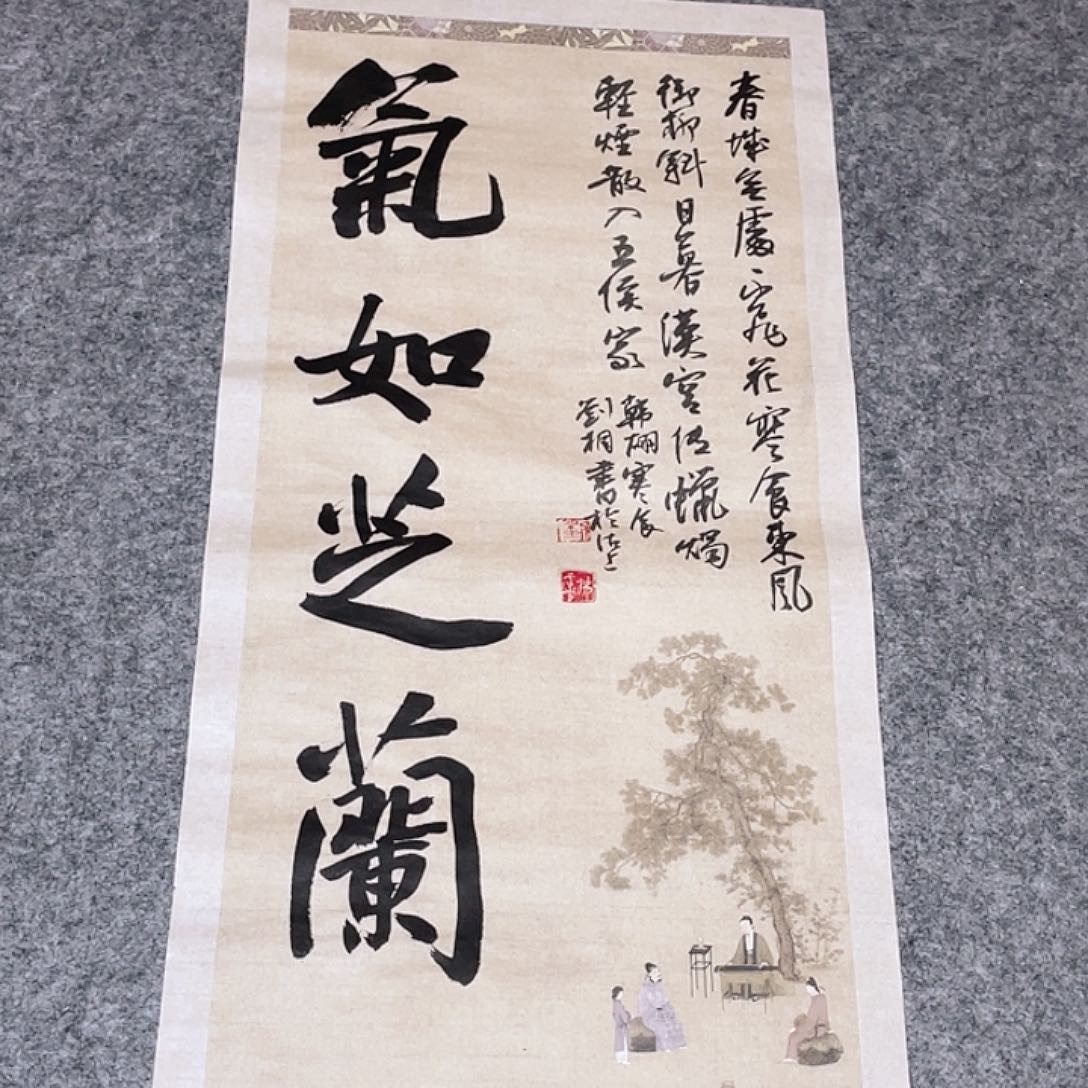 春城無處不飛花寒食東風
御柳斜日暮漢宮傳蠟燭
輕煙散入五侯家
韩翃寒食
劉桐書於
氣如芝蘭